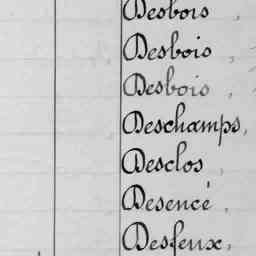 Desbois,
Desbois,
Desbois,
Deschamps,
Desclos,
Desencé,
Desfeux,